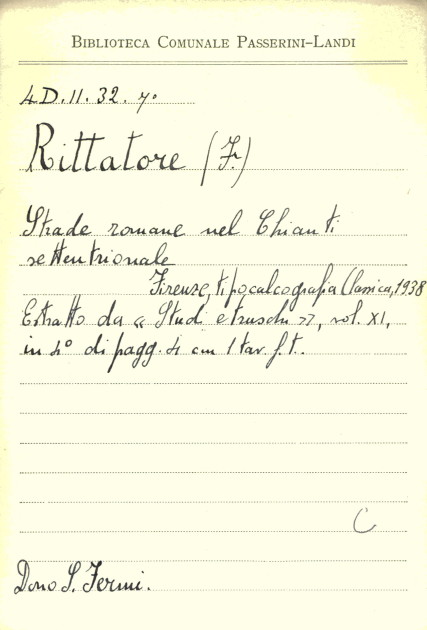 BIBLIOTECA COMUNALE PASSERINI-LANDI
4D.11.32.7º
Rittatore (F.)
Strade romane nel Chianti
settentrionale
Firenze, tipocalcografia Classica, 1938
Estratto da « Studi etruschi », vol. XI,
in 4º di pagg. 4 con 1 tav. f. t..
C
Dono S. Fermi.